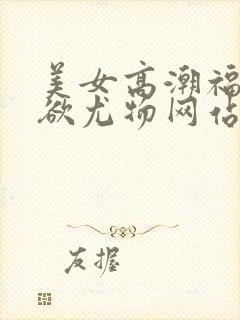 美女高潮福
欲尤物网站
友握